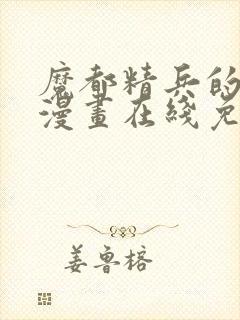 魔都精兵的
漫畫在綫免
姜魯榕